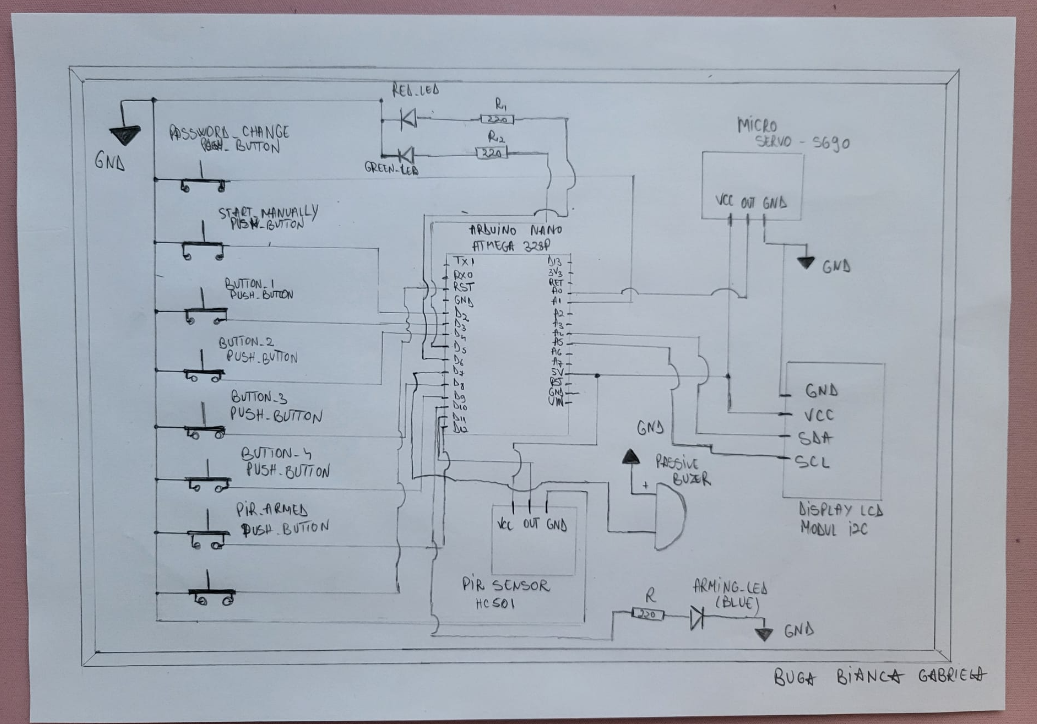 RED_LED
R1
220
R2
220
GREEN_LED
GND
PASSWORD_CHANGE
PUSH_BUTTON
START_MANUALLY
PUSH_BUTTON
BUTTON_1
PUSH_BUTTON
BUTTON_2
PUSH_BUTTON
BUTTON_3
PUSH_BUTTON
BUTTON_4
PUSH_BUTTON
PIR_ARMED
PUSH_BUTTON
ARDUINO NANO
ATMEGA 328P
TX1
RX0
RST
GND
D2
D3
D4
D5
D6
D7
D8
D9
D10
D11
D12
D13
3V3
REF
A0
A1
A2
A3
A4
A5
A6
A7
5V
RST
GND
VIN
MICRO
SERVO - SG90
VCC OUT GND
GND
GND
VCC
SDA
SCL
DISPLAY LCD
MODUL i2C
GND
+
PASSIVE
BUZER
VCC OUT GND
PIR SENSOR
HC501
R
220
ARMING_LED
(BLUE)
GND
BUGA BIANCA GABRIELA